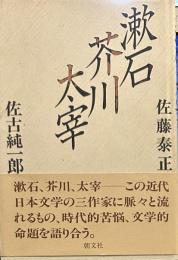 漱石
芥川
太宰
佐藤泰正
佐古純一郎
漱石、芥川、太宰——この近代
日本文学の三作家に脈々と流
れるもの、時代的苦悩、文学的
命題を語り合う。
朝文社